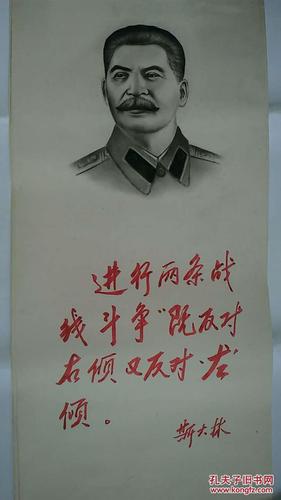 进行两条战
线斗争“既反对
右倾又反对“左”
倾。
斯大林
孔夫子旧书网
kongfz.com